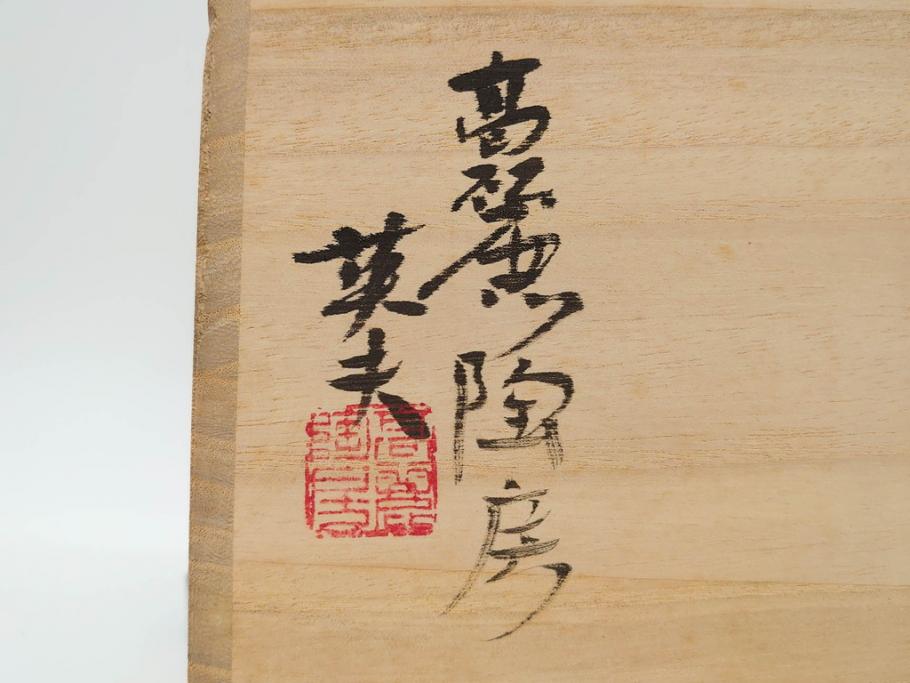 高麗陶房
英夫